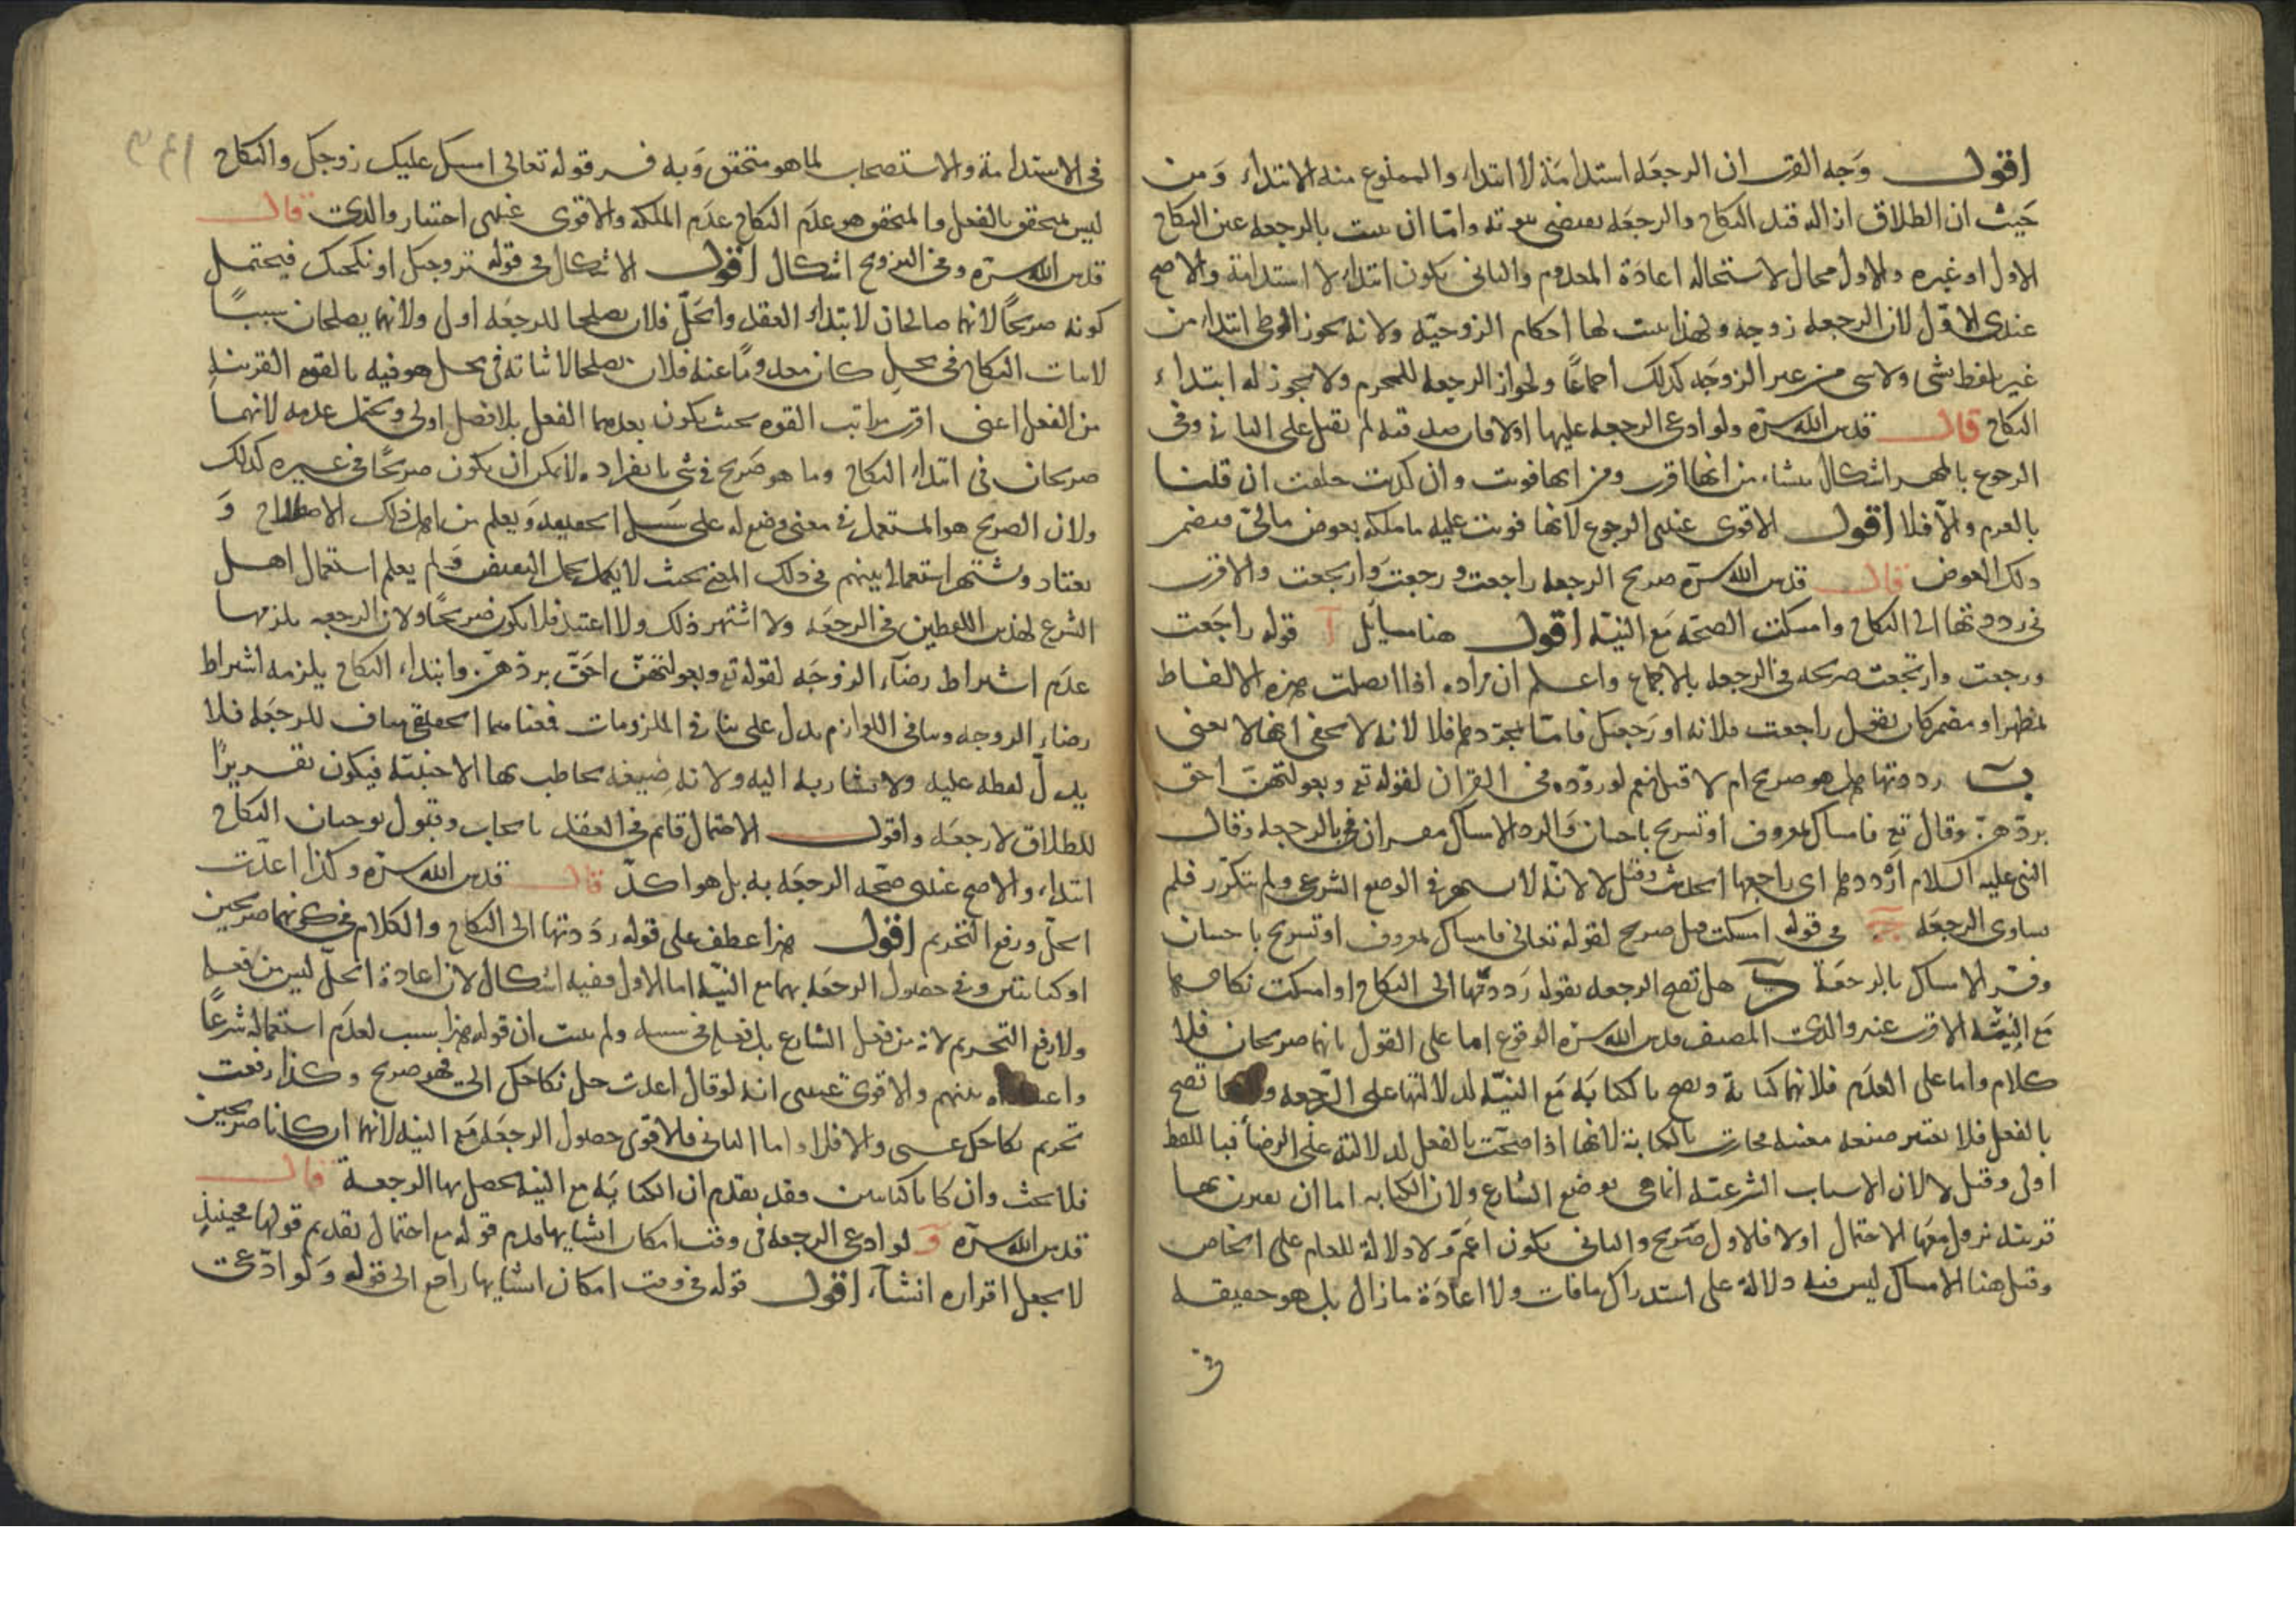 اقول وجه القرب ان الرجعه استدامة لا ابتداء والممنوع منه الابتداء ومن
حيث ان الطلاق ازاله قيد النكاح والرجعه تقتضى ثبوته واما ان يثبت بالرجعه عين النكاح
الاول او غيره والاول محال لاستحاله اعادة المعدوم والثانى يكون ابتداء لا استدامة والاصح
عندى الاول لان الرجعه زوجه ولهذا يثبت لها احكام الزوجيه ولانه يجوز الوطى ابتداء من
غير لفظ شى ولا شى من غير الزوجه كذلك اجماعا ولجواز الرجعه للمحرم ولا يجوز له ابتداء
النكاح قال قدس الله سره ولو ادعى الرجعه عليها اولا فان صدقته لم يقبل على الثانى وفى
الرجوع بالمهر اشكال ينشاء من انها اقرت ومن انها فوتت وان كذبت حلفت ان قلنا
بالغرم والا فلا اقول الاقوى عندى الرجوع لانها فوتت عليه ما ملكه بعوض مالى فيضمن
ذلك العوض قال قدس الله سره صريح الرجعه راجعت ورجعت وارتجعت والاقرب
فى رددتها الى النكاح وامسكت الصحه مع النيه اقول هنا مسايل آ قوله راجعت
ورجعت وارتجعت صريحه فى الرجعه بالاجماع واعلم ان مراده اذا اتصلت بهذه الالفاظ
لمظهر او مضمر كان يقول راجعت فلانه او رجعتك فاما بمجردها فلا لانه لا يخفى انها لا يعنى
ب رددتها هل هو صريح ام لا قيل نعم لوروده فى القران لقوله تع وبعولتهن احق
بردهن وقال تع فامساك بمعروف او تسريح باحسان والرد الامساك مفسران بالرجعه وقال
النبى عليه السلام ارددها اى راجعها الحديث وقيل لا لانه لا يشتهر فى الوضع الشرعى ولم يتكرر فلم
يساوى الرجعه ج فى قوله امسكت قيل صريح لقوله تعالى فامساك بمعروف او تسريح باحسان
وفسر الامساك بالرجعة د هل تصح الرجعه بقوله رددتها الى النكاح او امسكت نكاحها
مع النيه الاقرب عند والدى المصنف قدس الله سره الوقوع اما على القول بانهما صريحان فلا
كلام واما على العدم فلانهما كناية وتصح بالكنايه مع النيه لدلالتها على الرجعه تصح
بالفعل فلا يعتبر صيغه معينه فجازت بالكناية لانها اذا صحت بالفعل لدلالته على الرضا فباللفظ
اولى وقيل لا لان الاسباب الشرعيه انما هى بوضع الشارع ولان الكنايه اما ان يقترن بها
قرينه يزول معها الاحتمال اولا فالاول صريح والثانى يكون اعم ولا دلالة للعام على الخاص
وقيل هنا الامساك ليس فيه دلالة على استدراك ما فات ولا اعادة ما زال بل هو حقيقه
فى
فى الاستدامة والاستصحاب لما هو متحقق وبه فسر قوله تعالى امسك عليك زوجك والنكاح
ليس بمتحقق بالفعل والمتحقق هو عدم النكاح عدم الملكه والاقوى عندى اختيار والدى قال
قدس الله سره وفى التزويج اشكال اقول الاشكال فى قوله تزوجتك او نكحتك فيحتمل
كونه صريحا لانهما صالحان لابتداء العقد والحل فلان يصلحا للرجعه اولى ولانهما يصلحان سببا
لاثبات النكاح فى محل كان معدوما عنه فلان يصلحا لاثباته فى محل هو فيه بالقوه القريبه
من الفعل اعنى اقرب مراتب القوه بحيث يكون بعدمها الفعل بلا فصل اولى ويحتمل عدمه لانهما
صريحان فى ابتداء النكاح وما هو صريح فى شى بانفراده لا يمكن ان يكون صريحا فى غيره كذلك
ولان الصريح هو المستعمل فى معنى وضع له على سبيل الحقيقه ويعلم من اهل ذلك الاصطلاح و
يعتاد ويشتهر استعماله بينهم فى ذلك المعنى بحيث لا يكمل الضعيف ولم يعلم استعمال اهل
الشرع لهذين اللفظين فى الرجعه ولا اشتهر ذلك ولا اعتيد فلا يكون صريحا ولان الرجعه يلزمها
عدم اشتراط رضاء الزوجه لقوله تع وبعولتهن احق بردهن وابتداء النكاح يلزمه اشتراط
رضاء الزوجه وتنافى اللوازم يدل على تنافى الملزومات فمعناهما الحقيقى مناف للرجعه فلا
يدل لفظه عليه ولا يشار به اليه ولانه صيغه يخاطب بها الاجنبيه فيكون تقريرا
للطلاق لا رجعه واقول الاحتمال قائم فى العقد بايجاب وقبول يوجبان النكاح
ابتداء والاصح عندى صحه الرجعه به بل هو اكد قال قدس الله سره وكذا اعدت
الحل ورفع التحريم اقول هذا عطف على قوله رددتها الى النكاح والكلام فى كونهما صريحين
او كنايتين وفى حصول الرجعه بهما مع النيه اما الاول ففيه اشكال لان اعادة الحل ليس من فعله
ولا رفع التحريم لانه من فعل الشارع بل فعله فى سببه ولم يثبت ان قوله هذا سبب لعدم استعماله شرعا
بينهم والاقوى عندى انه لو قال اعدت حل نكاحك الى فهو صريح وكذا رفعت
تحريم نكاحك عنى والا فلا واما الثانى فالاقوى حصول الرجعه مع النيه لانهما ان كانا صريحين
فلا بحث وان كانا كنايتين فقد تقدم ان الكنايه مع النيه يحصل بها الرجعة قال
قدس الله سره و لو ادعى الرجعه فى وقت امكان انشايها قدم قوله مع احتمال تقديم قولها فحينئذ
لا يجعل اقراره انشاء اقول قوله فى وقت امكان انشايها راجع الى قوله ولو ادعى